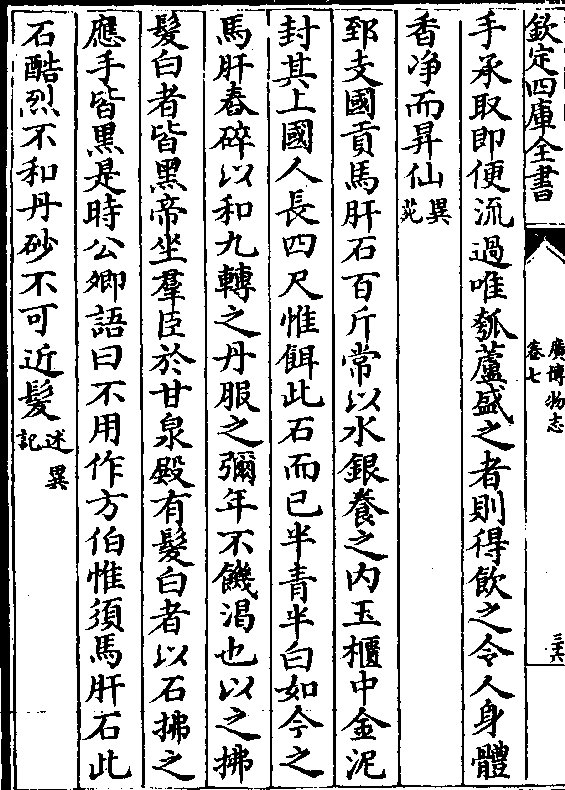 欽定四庫全書
廣博物志
卷七
三六
手承取即便流過唯瓠蘆盛之者則得飲之令人身體
香浄而昇仙異苑
郅支國貢馬肝石百斤常以水銀養之内玉櫃中金泥
封其上國人長四尺惟餌此石而已半青半白如今之
馬肝舂碎以和九轉之丹服之彌年不饑渴也以之拂
髮白者皆黑帝坐羣臣於甘泉殿有髮白者以石拂之
應手皆黑是時公卿語曰不用作方伯惟須馬肝石此
石酷烈不和丹砂不可近髮述異記